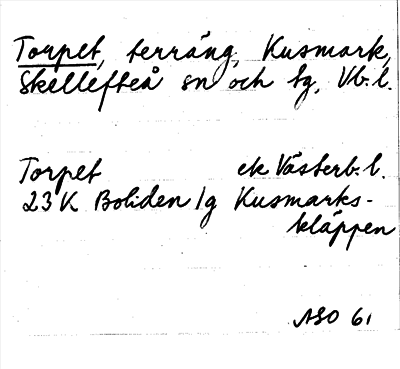 Torpet, terräng, Kusmark,
Skellefteå sn och tg, Vb. l.
Torpet ek Västerb. l.
23K Boliden 1g Kusmarks-
kläppen
ASO 61